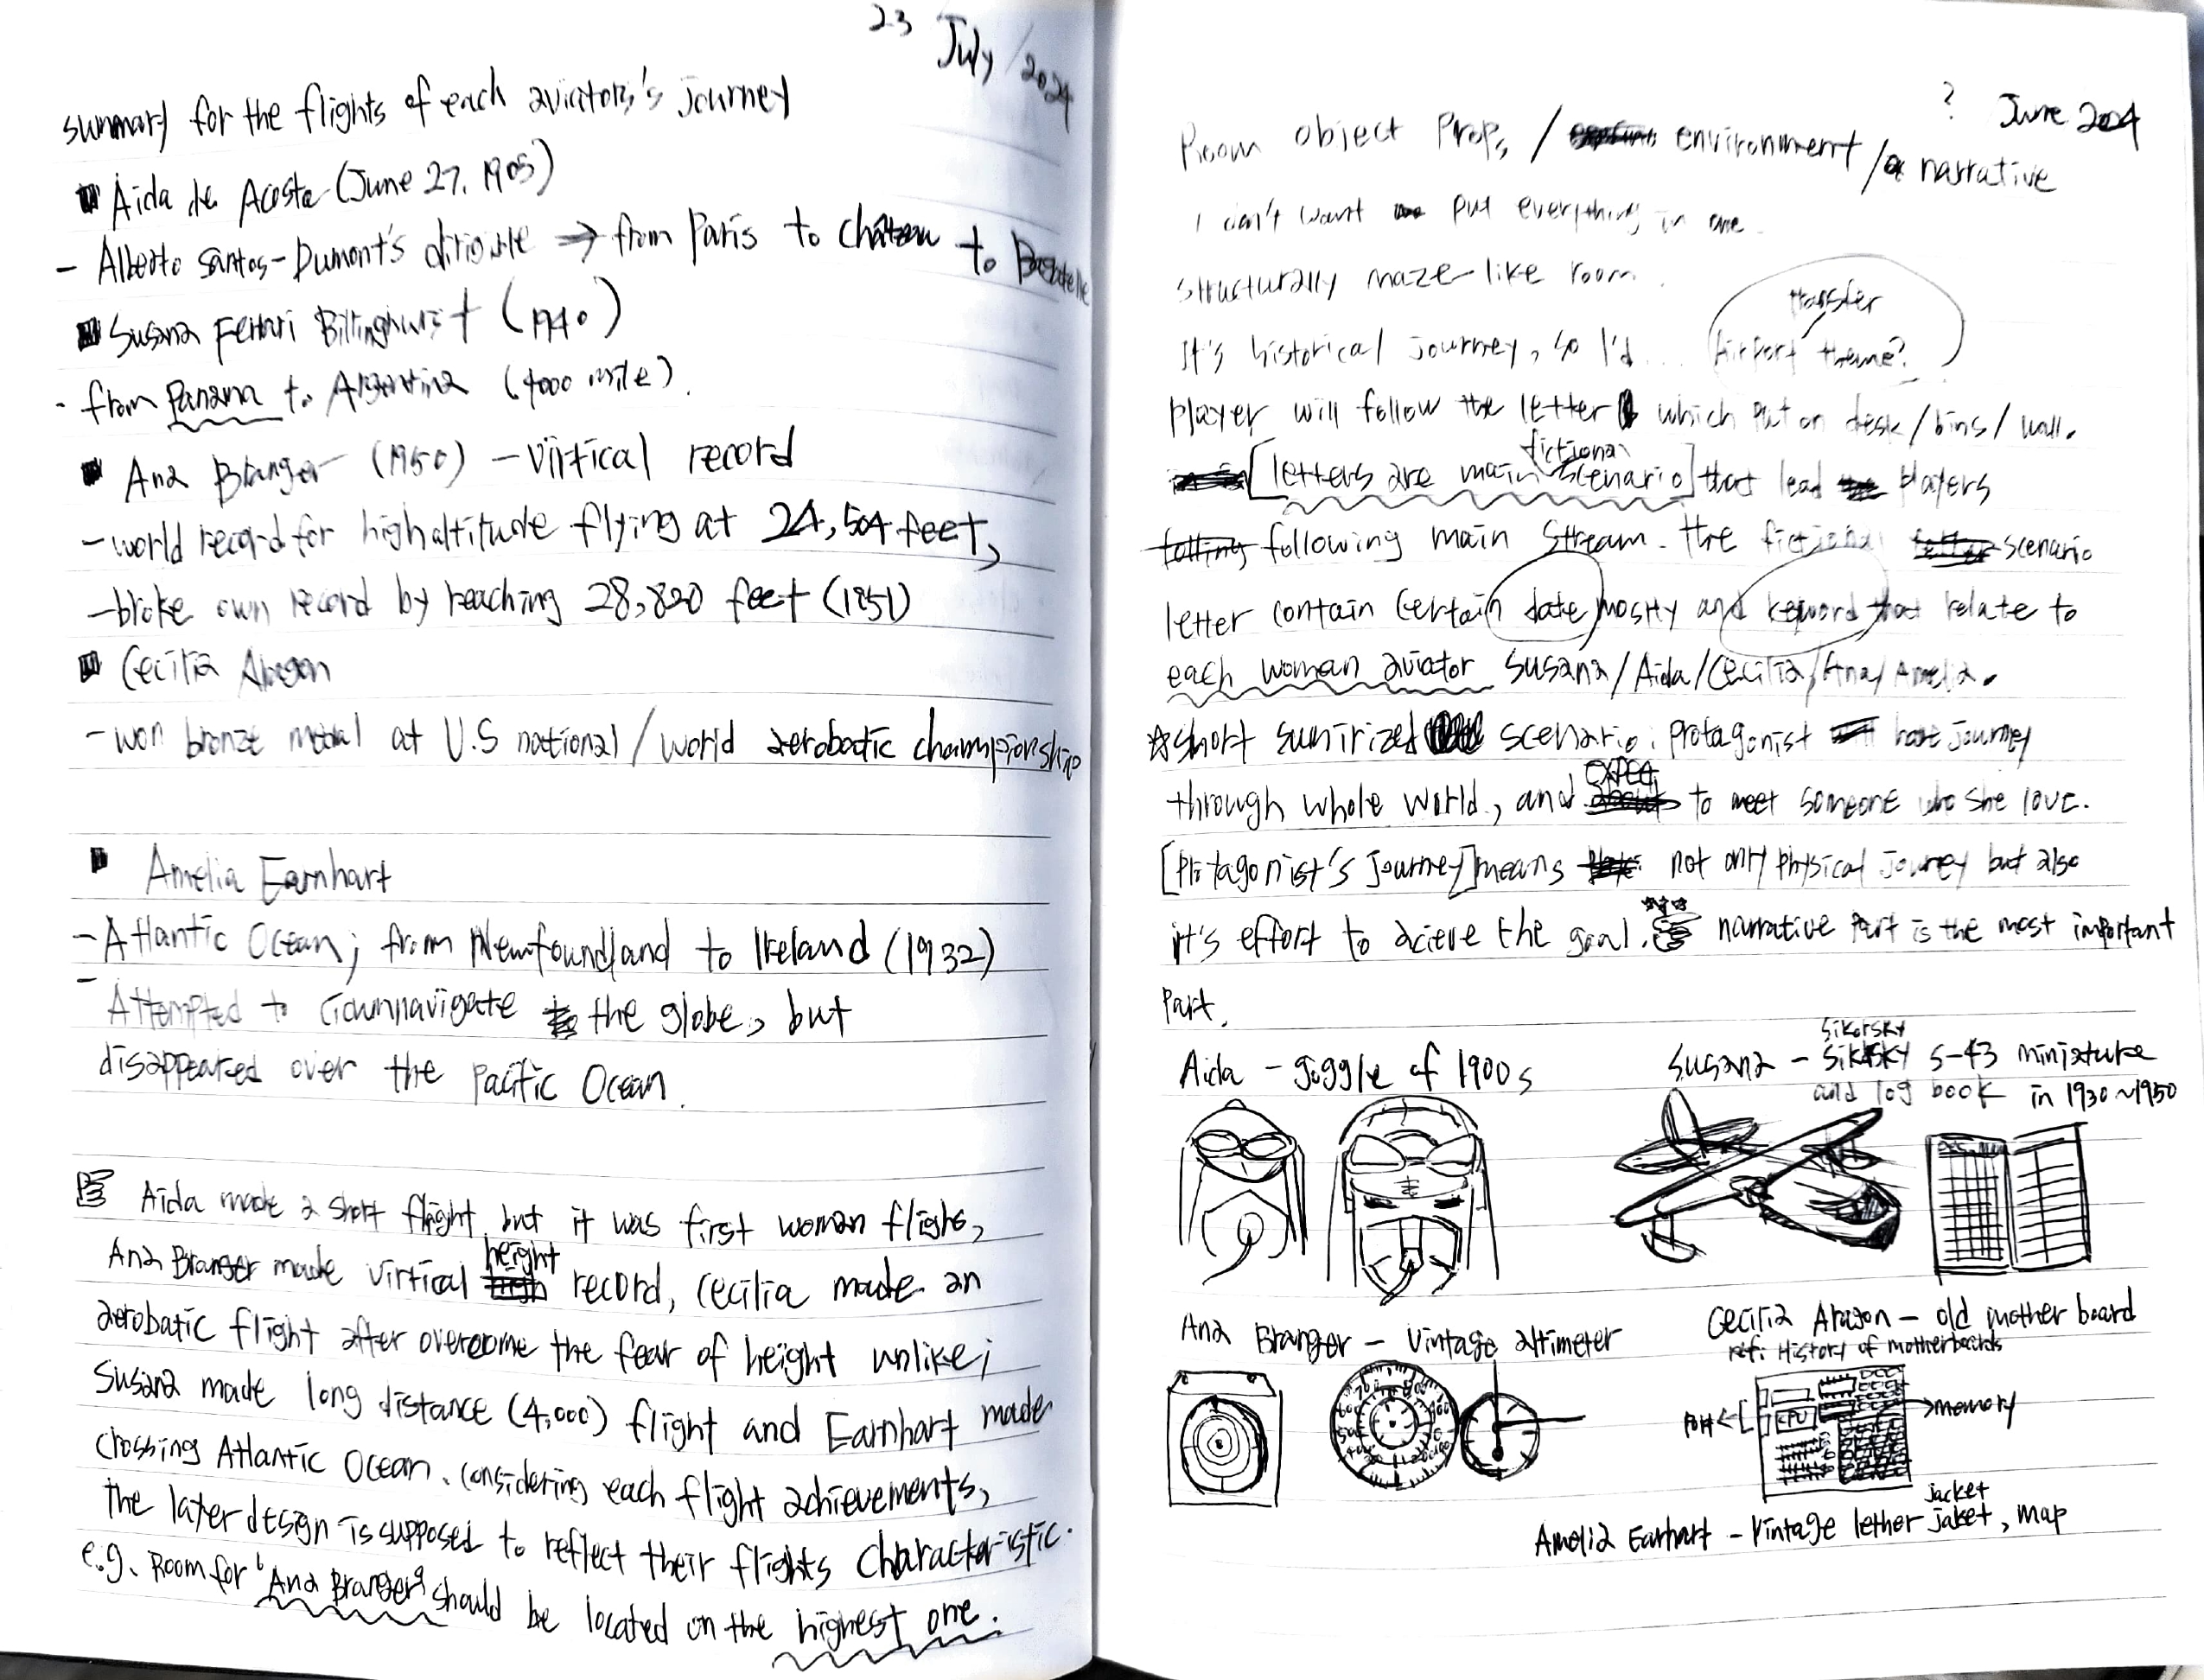 23 July/2024
summary for the flights of each aviators's journey
Aida de Acosta (June 27, 1903)
- Alberto Santos-Dumont's → from Paris to Château to
Susana Ferrari Billinghurst (1940)
- from Panama to Argentina (4000 mile).
Ana Branger (1950) - Virtical record
- world record for high altitude flying at 24,504 feet,
- broke own record by reaching 28,820 feet (1951)
Cecilia Aragon
- won bronze medal at U.S national/world aerobatic championship
Amelia Earnhart
- Atlantic Ocean; from Newfoundland to Ireland (1932)
- Attempted to the globe, but
disappeared over the Pacific Ocean.
Aida made a short flight but it was first woman flight,
Ana Branger made virtical height record, Cecilia made an
aerobatic flight after overcome the fear of height unlike;
Susana made long distance (4,000) flight and Earnhart made
crossing Atlantic Ocean. Considering each flight achievements,
the later design is supposed to reflect their flights characteristic.
e.g. Room for 'Ana Branger' should be located on the highest one.
? June 2024
Room object Props / environment / narrative
I don't want put everything in one.
structurally maze-like room.
transfer
It's historical journey, so I'd... Airport theme?
Player will follow the letter which put on desk/bins/wall.
fictional
[letters are main scenario] that lead players
following main stream. The fictional scenario
letter contain certain date mostly and keyword that relate to
each woman aviator Susana/Aida/Cecilia/Ana/Amelia.
☆short scenario: protagonist journey
expect
through whole world, and to meet someone who she love.
[Protagonist's journey] means not only physical journey but also
it's effort to acieve the goal. narrative part is the most important
Part.
Aida - goggle of 1900s
Sikorsky
Susana - S-43 miniature
and log book in 1930~1950
Ana Branger - Vintage altimeter
Cecilia Aragon - old mother board
ref: History of motherboards
Port
CPU
memory
jacket
Amelia Earhart - Vintage lether jaket, map